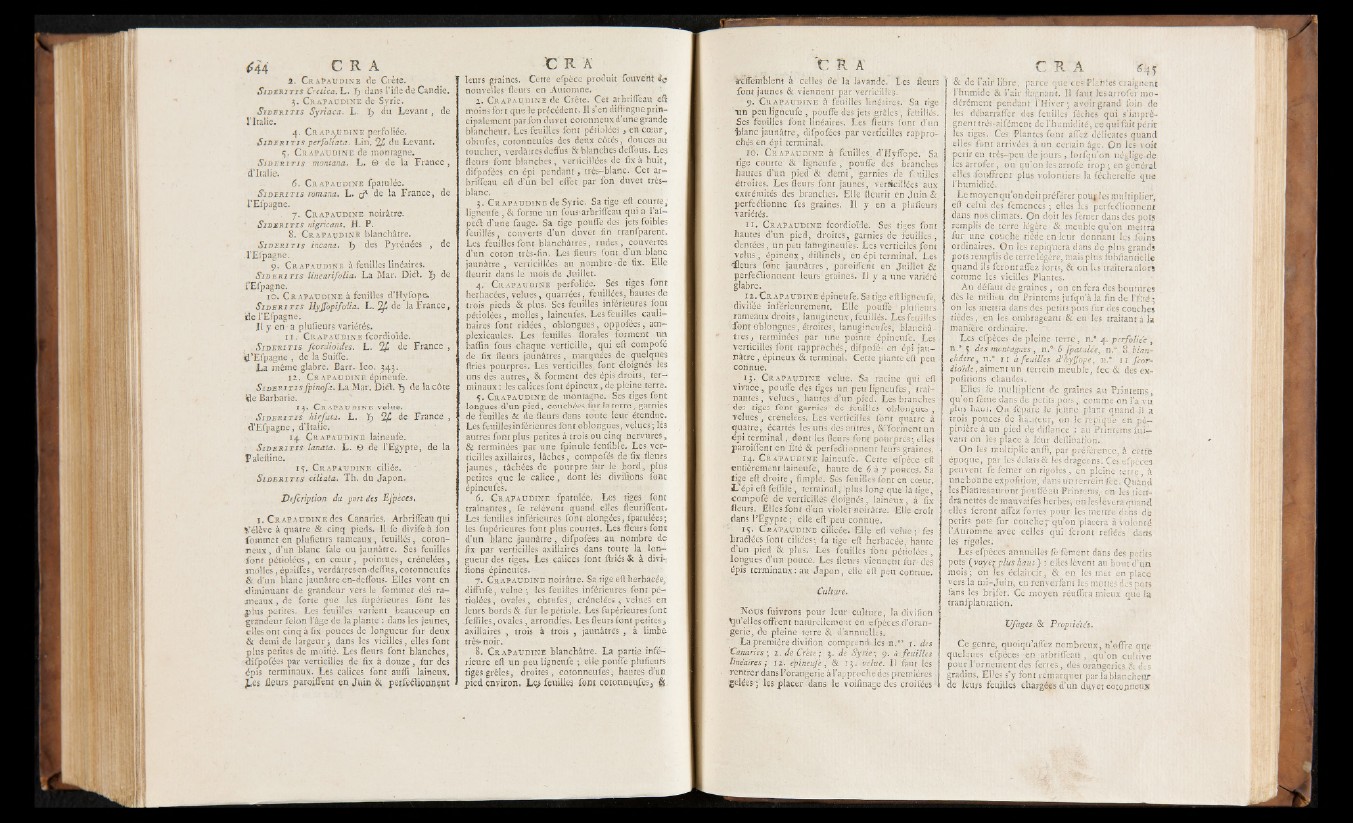 644 C R A
2. CRAPAUDINE de Crète.
SIDERITIS Cretica. L. ♄ dans l'île de Candie.
3. CRAPAUDINE de Syrie.
SIDERITIS Syriaca. L. ♄ du Levant, de
l'Italie.
4. CRAPAUDINE perfoliée.
SIDERITIS perfoliata. Lin. ♃ du Levant.
5. CRAPAUDINE de montagne.
SIDERITIS montana. L. ⊙ de la France,
d'Italie.
6. CRAPAUDINE spatulée.
SIDERITIS romana. L. ♂ de la France, de
l'Espagne.
7. CRAPAUDINE noirâtre.
SIDERITIS nigricans. H. P.
8. CRAPAUDINE blanchâtre.
SIDERITIS incana. ♄ des Pyrénées, de
l'Espagne.
9. CRAPAUDINE à feuilles linéaires.
SIDERITIS linearifolia. La Mar. Dict. ♄ de
l'Espagne.
10. CRAPAUDINE à feuilles d'Hysope.
SIDERITIS Hyssopifolia. L. ♃ de la France,
de l'Espagne.
Il y en a plusieurs variétés.
11. CRAPAUDINE scordioïde.
SIDERITIS scordioïdes. L. ♃ de France,
d'Espagne, de la Suisse.
La même glabre. Barr. Ico. 343.
12. CRAPAUDINE épineuse.
SIDERITIS spinosa. La Mar. Dict. ♄ de la côte
de Barbarie.
13. CRAPAUDINE velue.
SIDERITIS hirsuta. L. ♄ ♃ de France,
d'Espagne, d'Italie.
14. CRAPAUDINE laineuse.
SIDERITIS lanata. L. ⊙ de l'Egypte, de la
Palestine.
15. CRAPAUDINE ciliée.
SIDERITIS ciliata. Th. du Japon.
Description du port des Espèces.
1. CRAPAUDINE des Canaries. Arbrisseau qui
s'élève à quatre & cinq pieds. Il se divise à son
sommet en plusieurs rameaux, feuillés, coton-
neux, d'un blanc sale ou jaunâtre. Ses feuilles
sont pétiolées, en cœur, pointues, crénelées,
molles, épaisses, verdâtres en-dessus, cotonneuses
& d'un blanc jaunâtre en-dessous. Elles vont en
diminuant de grandeur vers le sommet des ra-
meaux, de sorte que les supérieures sont les
plus petites. Les feuilles varient beaucoup en
grandeur selon l'âge de la plante : dans les jeunes,
elles ont cinq à six pouces de longueur sur deux
& demi de largeur ; dans les vieilles, elles sont
plus petites de moitié. Les fleurs sont blanches,
disposées par verticilles de six à douze, sur des
épis terminaux. Les calices sont aussi laineux.
Les fleurs paroissent en Juin & perfectionnent
C R A
leurs graines. Cette espèce produit souvent de
nouvelles fleurs en Automne.
2. CRAPAUDINE de Crète. Cet arbrisseau est
moins fort que le précédent. Il s'en distingue prin-
cipalement par son duvet cotonneux d'une grande
blancheur. Les feuilles sont pétiolées, en cœur,
obtuses, cotonneuses des deux côtés, douces au
toucher, verdâtres dessus & blanches dessous. Les
fleurs sont blanches, verticillées de six à huit,
disposées en épi pendant, très-blanc. Cet ar-
brisseau est d'un bel effet par son duvet très-
blanc.
3. CRAPAUDINE de Syrie. Sa tige est courte,
ligneuse, & forme un sous-arbrisseau qui a l'as-
pect d'une sauge. Sa tige pousse des jets foibles
feuillés, couverts d'un duvet fin transparent.
Les feuilles sont blanchâtres, rudes, couvertes
d'un coton très-fin. Les fleurs sont d'un blanc
jaunâtre, verticillées au nombre de six. Elle
fleurit dans le mois de Juillet.
4. CRAPAUDINE perfoliée. Ses tiges sont
herbacées, velues, quarrées, feuillées, hautes de
trois pieds & plus. Ses feuilles inférieures sont
pétiolées, molles, laineuses. Les feuilles cauli-
naires sont ridées, oblongues, opposées, am-
plexicaules. Les feuilles florales forment un
bassin sous chaque verticille, qui est composé
de six fleurs jaunâtres, marquées de quelques
stries pourpres. Les verticilles sont éloignés les
uns des autres, & forment des épis droits, ter-
minaux : les calices sont épineux, de pleine terre.
5. CRAPAUDINE de montagne. Ses tiges sont
longues d'un pied, couchées sur la terre, garnies
de feuilles & de fleurs dans toute leur étendue.
Les feuilles inférieures sont oblongues, velues; les
autres sont plus petites à trois ou cinq nervures,
& terminées par une spinule sensible. Les ver-
ticilles axillaires, lâches, composés de six fleurs
jaunes, tâchées de pourpre sur le bord, plus
petites que le calice, dont les divisions sont
épineuses.
6. CRAPAUDINE spatulée. Les tiges sont
traînantes, se relèvent quand elles fleurissent.
Les feuilles inférieures sont alongées, spatulées;
les supérieures sont plus courtes. Les fleurs sont
d'un blanc jaunâtre, disposées au nombre de
six par verticilles axillaires dans toute la lon-
gueur des tiges. Les calices sont striés & à divi-
sions épineuses.
7. CRAPAUDINE noirâtre. Sa tige est herbacée,
diffuse, velue ; les feuilles inférieures sont pé-
tiolées, ovales, obtuses, crénelées, velues en
leurs bords & sur le pétiole. Les supérieures sont
sessiles, ovales, arrondies. Les fleurs sont petites,
axillaires, trois à trois, jaunâtres, à limbe
très-noir.
8. CRAPAUDINE blanchâtre. La partie infé-
rieure est un peu ligneuse ; elle pousse plusieurs
tiges grêles, droites, cotonneuses, hautes d'un
pied environ. Les feuilles sont cotonneuses, &
C R A
ressemblent à celles de la lavande. Les fleurs
sont jaunes & viennent par verticilles.
9. CRAPAUDINE à feuilles linéaires. Sa tige
un peu ligneuse, pousse des jets grêles, feuillés.
Ses feuilles sont linéaires. Les fleurs sont d'un
blanc jaunâtre, disposées par verticilles rappro-
chés en épi terminal.
10. CRAPAUDINE à feuilles d'Hyssope. Sa
tige courte & ligneuse, pousse des branches
hautes d'un pied & demi, garnies de feuilles
étroites. Les fleurs sont jaunes, verticillées aux
extrémités des branches. Elle fleurit en Juin &
perfectionne ses graines. Il y en a plusieurs
variétés.
11. CRAPAUDINE scordioïde. Ses tiges sont
hautes d'un pied, droites, garnies de feuilles,
dentées, un peu lanugineuses. Les verticiles sont
velus, épineux, distincts, en épi terminal. Les
fleurs sont jaunâtres, paroissent en Juillet &
perfectionnent leurs graines. Il y a une variété
glabre.
12. CRAPAUDINE épineuse. Sa tige est ligneuse,
divisée inférieurement. Elle pousse plusieurs
rameaux droits, lanugineux, feuillés. Les feuilles
sont oblongues, étroites, lanugineuses, blanchâ-
tres, terminées par une pointe épineuse. Les
verticilles sont rapprochés, disposé en épi jau-
nâtre, épineux & terminal. Cette plante est peu
connue.
13. CRAPAUDINE velue. Sa racine qui est
vivace, pousse des tiges un peu ligneuses, traî-
nantes, velues, hautes d'un pied. Les branches
des tiges sont garnies de feuilles oblongues,
velues, crenelées. Les verticilles sont quatre à
quatre, écartés les uns des autres, & forment un
épi terminal, dont les fleurs sont pourpres; elles
paroissent en Eté & perfectionnent leurs graines.
14. CRAPAUDINE laineuse. Cette espèce est
entièrement laineuse, haute de 6 à 7 pouces. Sa
tige est droite, simple. Ses feuilles sont en cœur.
L'épi est sessile, terminal, plus long que la tige,
composé de verticilles éloignés, laineux, à six
fleurs. Elles sont d'un violet noirâtre. Elle croît
dans l'Egypte; elle est peu connue.
15. CRAPAUDINE ciliée. Elle est velue ; ses
bractées sont ciliées; sa tige est herbacée, haute
d'un pied & plus. Les feuilles sont pétiolées,
longues d'un pouce. Les fleurs viennent sur des
épis terminaux: au Japon, elle est peu connue.
Culture.
Nous suivrons pour leur culture, la division
qu'elles offrent naturellement en espèces d'oran-
gerie, de pleine terre & d'annuelles.
La première division comprend les n.os 1. des
Canaries ; 2. de Crète ; 3. de Syrie ; 9. à feuilles
linéaires ; 12. épineuse, & 13. velue. Il faut les
rentrer dans l'orangerie à l'approche des premières
gelées ; les placer dans le voisinage des croisées
C R A 645
& de l'air libre, parce que ces Plantes craignent
l'humide & l'air stagnant. Il faut les arroser mo-
dérément pendant l'Hiver ; avoir grand soin de
les débarrasser des feuilles sèches qui s'impré-
gnent très-aisément de l'humidité, ce qui fait périr
les tiges. Ces Plantes sont assez délicates quand
elles sont arrivées à un certain âge. On les voit
périr en très-peu de jours, lorsqu'on néglige de
les arroser, ou qu'on les arrose trop ; en général
elles souffrent plus volontiers la sécheresse que
l'humidité.
Le moyen qu'on doit préférer pour les multiplier,
est celui des semences ; elles les perfectionnent
dans nos climats. On doit les semer dans des pots
remplis de terre légère & meuble qu'on mettra
sur une couche tiède en leur donnant les soins
ordinaires. On les repiquera dans de plus grands
pots remplis de terre légère, mais plus substantielle
quand ils seront assez forts, & on les traitera alors
comme les vieilles Plantes.
Au défaut de graines, on en fera des boutures
dès le milieu du Printems jusqu'à la fin de l'Eté ;
on les mettra dans des petits pots sur des couches
tièdes, en les ombrageant & en les traitant à la
manière ordinaire.
Les espèces de pleine terre, n.° 4. perfoliée,
n.° 5 des montagnes, n.° 6 spatulée, n.° 8. blan-
châtre, n.° 11 à feuilles d'hyssope, n.° 11 scor-
dioïde, aiment un terrein meuble, sec & des ex-
positions chaudes.
Elles se multiplient de graines au Printems,
qu'on sème dans de petits pots, comme on l'a vu
plus haut. On sépare le jeune plant quand il a
trois pouces de hauteur, on le repique en pé-
pinière à un pied de distance : au Printems sui-
vant on les place à leur destination.
On les multiplie aussi, par préférence, à cette
époque, par les éclats & les drageons. Ces espèces
peuvent se semer en rigoles, en pleine terre, à
une bonne exposition, dans un terrein sec. Quand
les Plantes auront poussé au Printems, on les tien-
dra nettes de mauvaises herbes, on les levera quand
elles seront assez fortes pour les mettre dans de
petits pots sur couche, qu'on placera à volonté
l'Automne avec celles qui seront restées dans
les rigoles.
Les espèces annuelles se sèment dans des petits
pots (voyez plus haut) : elles lèvent au bout d'un
mois ; on les éclaircit, & on les met en place
vers la mi-Juin, en renversant les mottes des pots
sans les briser. Ce moyen réussira mieux que la
transplantation.
Usages & Propriétés.
Ce genre, quoiqu'assez nombreux, n'offre que
quelques espèces en arbrisseau, qu'on cultive
pour l'ornement des serres, des orangeries & des
gradins. Elles s'y font remarquer par la blancheur
de leurs feuilles chargées d'un duvet cotonneux